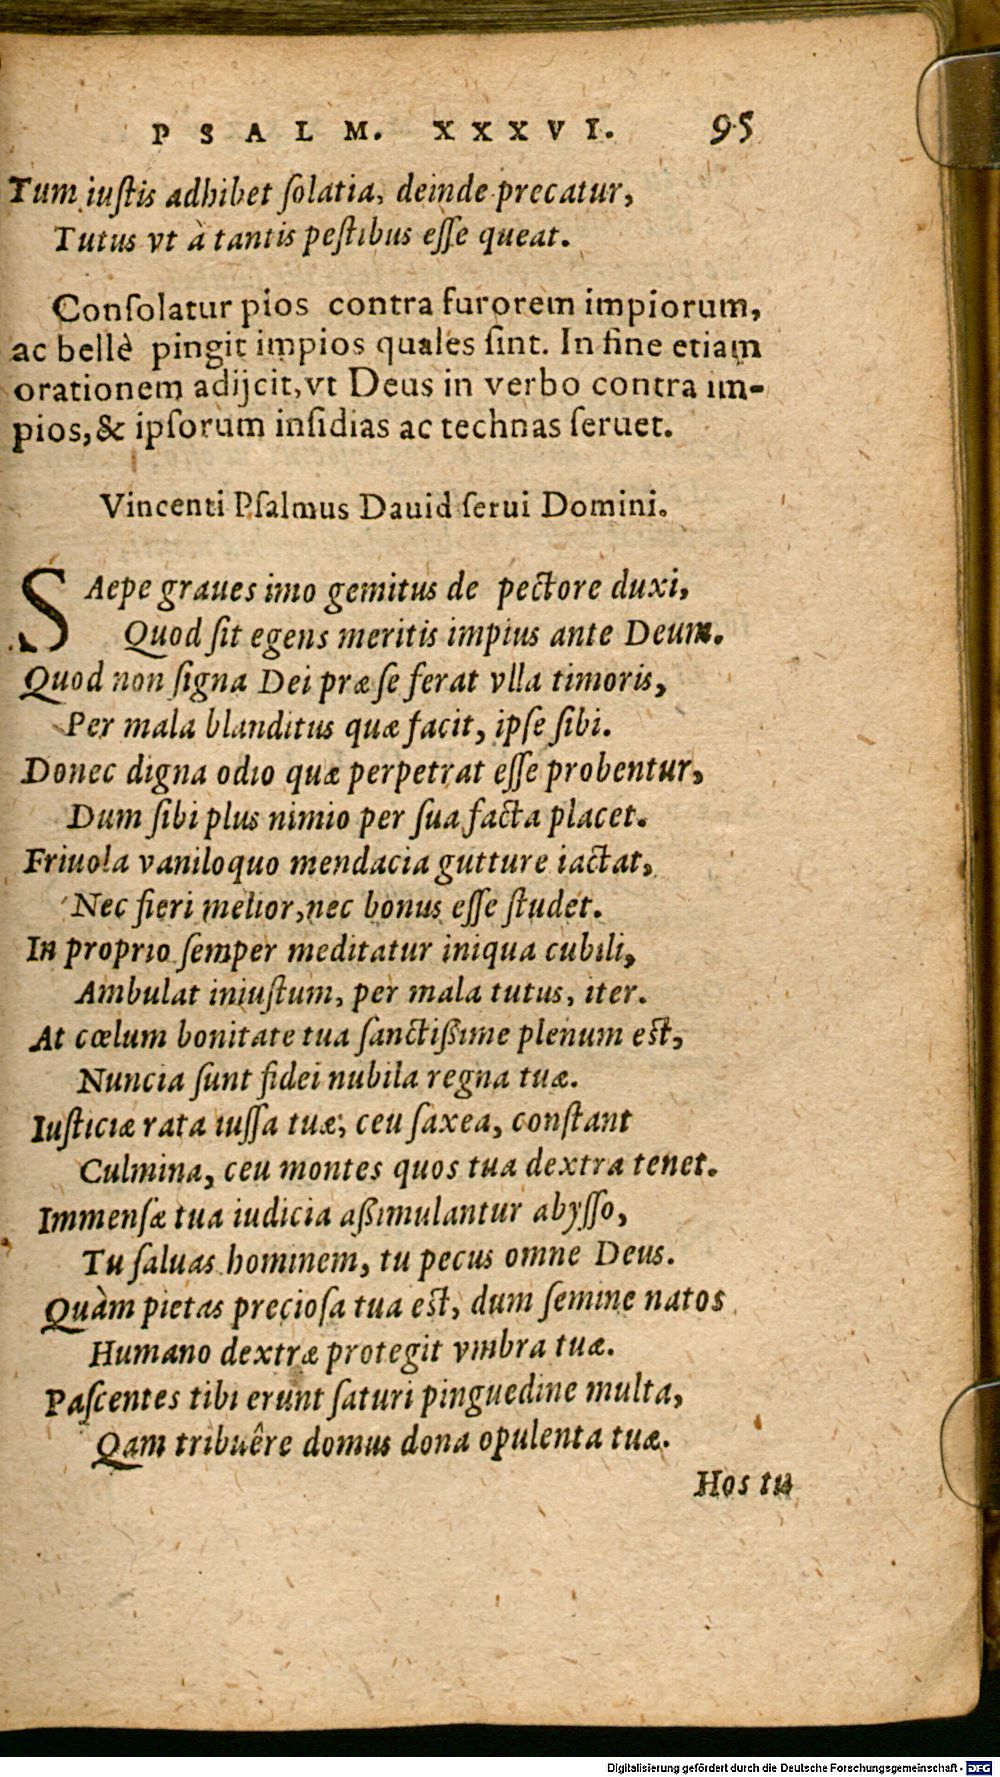 PSALM. XXXVI. 95
Tum iuſtis adhibet ſolatia, deinde precatur,
Tutus vt à tantis peſtibus eſſe queat.
Conſolatur pios contra furorem impiorum,
ac bellè pingit impios quales ſint. In fine etiam
orationem adijcit, vt Deus in verbo contra im-
pios, & ipſorum inſidias ac technas ſeruet.
Vincenti Pſalmus Dauid ſerui Domini.
SAepe graues imo gemitus de pectore duxi,
Quod ſit egens meritis impius ante Deum.
Quod non ſigna Dei præ ſe ferat vlla timoris,
Per mala blanditus quæ facit, ipſe ſibi.
Donec digna odio quæ perpetrat eſſe probentur,
Dum ſibi plus nimio per ſua facta placet.
Friuola vaniloquo mendacia gutture iactat,
Nec fieri melior, nec bonus eſſe ſtudet.
In proprio ſemper meditatur iniqua cubili,
Ambulat iniuſtum, per mala tutus, iter.
At cœlum bonitate tua ſanctißime plenum est,
Nuncia ſunt fidei nubila regna tuæ.
Iuſticiæ rata iuſſa tuæ, ceu ſaxea, conſtant
Culmina, ceu montes quos tua dextra tenet.
Immenſæ tua iudicia aßimulantur abyſſo,
Tu ſaluas hominem, tu pecus omne Deus.
Quàm pietas precioſa tua est, dum ſemine natos
Humano dextræ protegit vmbra tuæ.
Paſcentes tibi erunt ſaturi pinguedine multa,
Qam tribuêre domus dona opulenta tuæ.
Hos tu
Digitalisierung gefördert durch die Deutsche Forschungsgemeinschaft - DFG